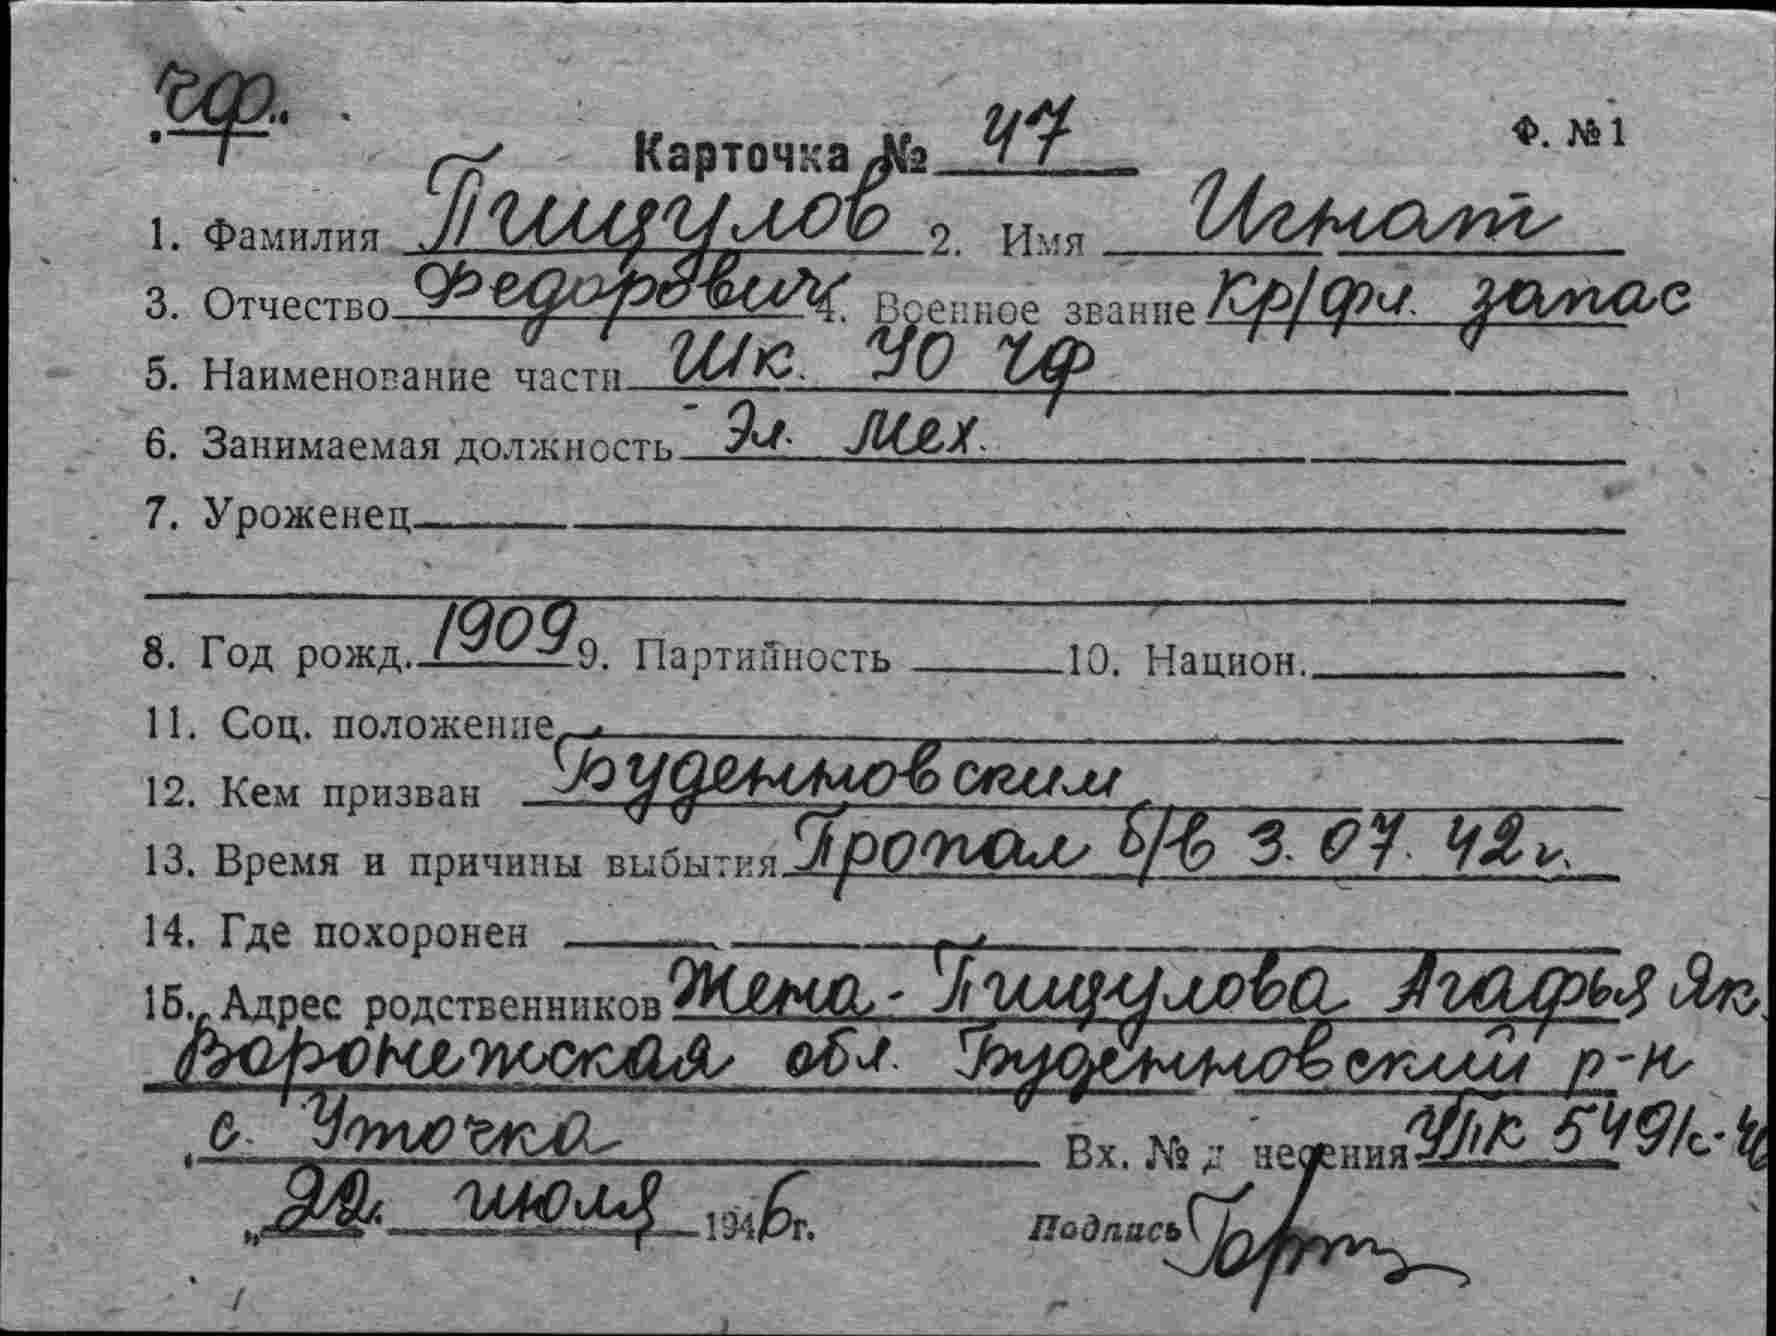 ЧФ.
Карточка № 47
Ф. №1
1. Фамилия Пищулов 2. Имя Игнат
3. Отчество Федорович 4. Военное звание Кр/фл. запас
5. Наименование части Шк. УО ЧФ
6. Занимаемая должность Эл. мех.
7. Уроженец
8. Год рожд. 1909 9. Партийность 10. Национ.
11. Соц. положение
12. Кем призван Буденновским
13. Время и причины выбытия Пропал б/в 3.07.42 г.
14. Где похоронен
15. Адрес родственников Жена - Пищулова Агафья Як.
Воронежская обл. Буденновский р-н
с. Уточка Вх. № д несения УПК 549/с-46
„22. июля 1946 г. Подпись